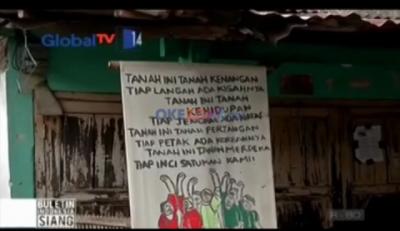 GlobalTV 14
TANAH INI TANAH KENANGAN
TIAP LANGAH ADA KISAHNYA
TANAH INI TANAH
KEHIDUPAN
TIAP JENGKAL ADA
TANAH INI TANAH
TIAP PETAK ADA
TANAH INI TANAH MERDEKA
TIAP INCI SATUKAN KAMI!
BULETIN
INDONESIA
SIANG
R-BO